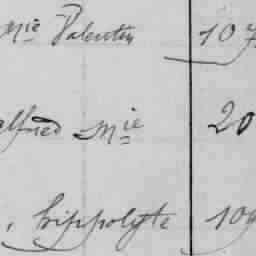 Mie Valentin 107
alfred Mie 20
, hippolyte 109